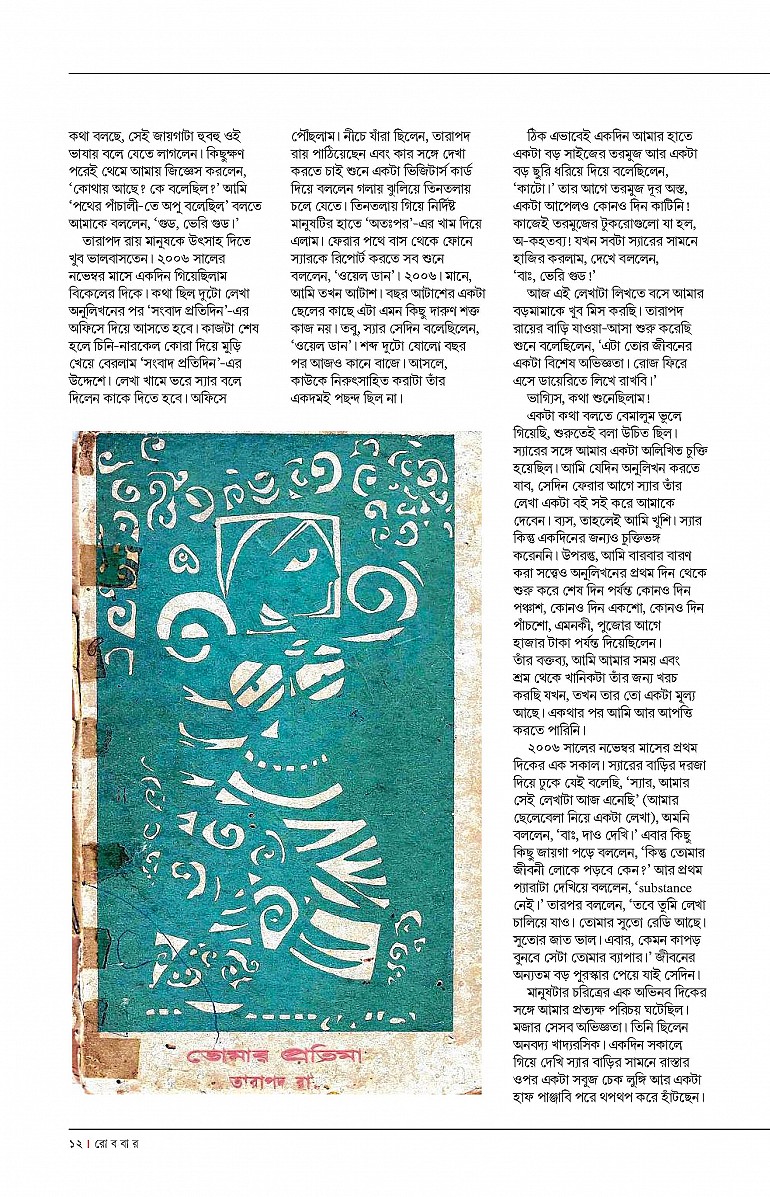 কথা বলছে, সেই জায়গাটা হুবহু ওই
ভাষায় বলে যেতে লাগলেন। কিছুক্ষণ
পরেই থেমে আমায় জিজ্ঞেস করলেন,
‘কোথায় আছে? কে বলেছিল?’ আমি
‘পথের পাঁচালী-তে অপু বলেছিল’ বলতে
আমাকে বললেন, ‘গুড, ভেরি গুড।’
তারাপদ রায় মানুষকে উৎসাহ দিতে
খুব ভালবাসতেন। ২০০৬ সালের
নভেম্বর মাসে একদিন গিয়েছিলাম
বিকেলের দিকে। কথা ছিল দুটো লেখা
অনুলিখনের পর ‘সংবাদ প্রতিদিন’-এর
অফিসে দিয়ে আসতে হবে। কাজটা শেষ
হলে চিনি-নারকেল কোরা দিয়ে মুড়ি
খেয়ে বেরলাম ‘সংবাদ প্রতিদিন’-এর
উদ্দেশে। লেখা খামে ভরে স্যার বলে
দিলেন কাকে দিতে হবে। অফিসে
পৌঁছলাম। নীচে যাঁরা ছিলেন, তারাপদ
রায় পাঠিয়েছেন এবং কার সঙ্গে দেখা
করতে চাই শুনে একটা ভিজিটার্স কার্ড
দিয়ে বললেন গলায় ঝুলিয়ে তিনতলায়
চলে যেতে। তিনতলায় গিয়ে নির্দিষ্ট
মানুষটির হাতে ‘অতঃপর’-এর খাম দিয়ে
এলাম। ফেরার পথে বাস থেকে ফোনে
স্যারকে রিপোর্ট করতে সব শুনে
বললেন, ‘ওয়েল ডান’। ২০০৬। মানে,
আমি তখন আটাশ। বছর আটাশের একটা
ছেলের কাছে এটা এমন কিছু দারুণ শক্ত
কাজ নয়। তবু, স্যার সেদিন বলেছিলেন,
‘ওয়েল ডান’। শব্দ দুটো ষোলো বছর
পর আজও কানে বাজে। আসলে,
কাউকে নিরুৎসাহিত করাটা তাঁর
একদমই পছন্দ ছিল না।
ঠিক এভাবেই একদিন আমার হাতে
একটা বড় সাইজের তরমুজ আর একটা
বড় ছুরি ধরিয়ে দিয়ে বলেছিলেন,
‘কাটো।’ তার আগে তরমুজ দূর অস্ত,
একটা আপেলও কোনও দিন কাটিনি!
কাজেই তরমুজের টুকরোগুলো যা হল,
অ-কহতব্য! যখন সবটা স্যারের সামনে
হাজির করলাম, দেখে বললেন,
‘বাঃ, ভেরি গুড!’
আজ এই লেখাটা লিখতে বসে আমার
বড়মামাকে খুব মিস করছি। তারাপদ
রায়ের বাড়ি যাওয়া-আসা শুরু করেছি
শুনে বলেছিলেন, ‘এটা তোর জীবনের
একটা বিশেষ অভিজ্ঞতা। রোজ ফিরে
এসে ডায়েরিতে লিখে রাখবি।’
ভাগ্যিস, কথা শুনেছিলাম!
একটা কথা বলতে বেমালুম ভুলে
গিয়েছি, শুরুতেই বলা উচিত ছিল।
স্যারের সঙ্গে আমার একটা অলিখিত চুক্তি
হয়েছিল। আমি যেদিন অনুলিখন করতে
যাব, সেদিন ফেরার আগে স্যার তাঁর
লেখা একটা বই সই করে আমাকে
দেবেন। ব্যস, তাহলেই আমি খুশি। স্যার
কিন্তু একদিনের জন্যও চুক্তিভঙ্গ
করেননি। উপরন্তু, আমি বারবার বারণ
করা সত্ত্বেও অনুলিখনের প্রথম দিন থেকে
শুরু করে শেষ দিন পর্যন্ত কোনও দিন
পঞ্চাশ, কোনও দিন একশো, কোনও দিন
পাঁচশো, এমনকী, পুজোর আগে
হাজার টাকা পর্যন্ত দিয়েছিলেন।
তাঁর বক্তব্য, আমি আমার সময় এবং
শ্রম থেকে খানিকটা তাঁর জন্য খরচ
করছি যখন, তখন তার তো একটা মূল্য
আছে। একথার পর আমি আর আপত্তি
করতে পারিনি।
২০০৬ সালের নভেম্বর মাসের প্রথম
দিকের এক সকাল। স্যারের বাড়ির দরজা
দিয়ে ঢুকে যেই বলেছি, ‘স্যার, আমার
সেই লেখাটা আজ এনেছি’ (আমার
ছেলেবেলা নিয়ে একটা লেখা), অমনি
বললেন, ‘বাঃ, দাও দেখি।’ এবার কিছু
কিছু জায়গা পড়ে বললেন, ‘কিন্তু তোমার
জীবনী লোকে পড়বে কেন?’ আর প্রথম
প্যারাটা দেখিয়ে বললেন, ‘substance
নেই।’ তারপর বললেন, ‘তবে তুমি লেখা
চালিয়ে যাও। তোমার সুতো রেডি আছে।
সুতোর জাত ভাল। এবার, কেমন কাপড়
বুনবে সেটা তোমার ব্যাপার।’ জীবনের
অন্যতম বড় পুরস্কার পেয়ে যাই সেদিন।
মানুষটার চরিত্রের এক অভিনব দিকের
সঙ্গে আমার প্রত্যক্ষ পরিচয় ঘটেছিল।
মজার সেসব অভিজ্ঞতা। তিনি ছিলেন
অনবদ্য খাদ্যরসিক। একদিন সকালে
গিয়ে দেখি স্যার বাড়ির সামনে রাস্তার
ওপর একটা সবুজ চেক লুঙ্গি আর একটা
হাফ পাঞ্জাবি পরে থপথপ করে হাঁটছেন।
তোমার প্রতিমা
তারাপদ রা
১২ । রো ব বা র